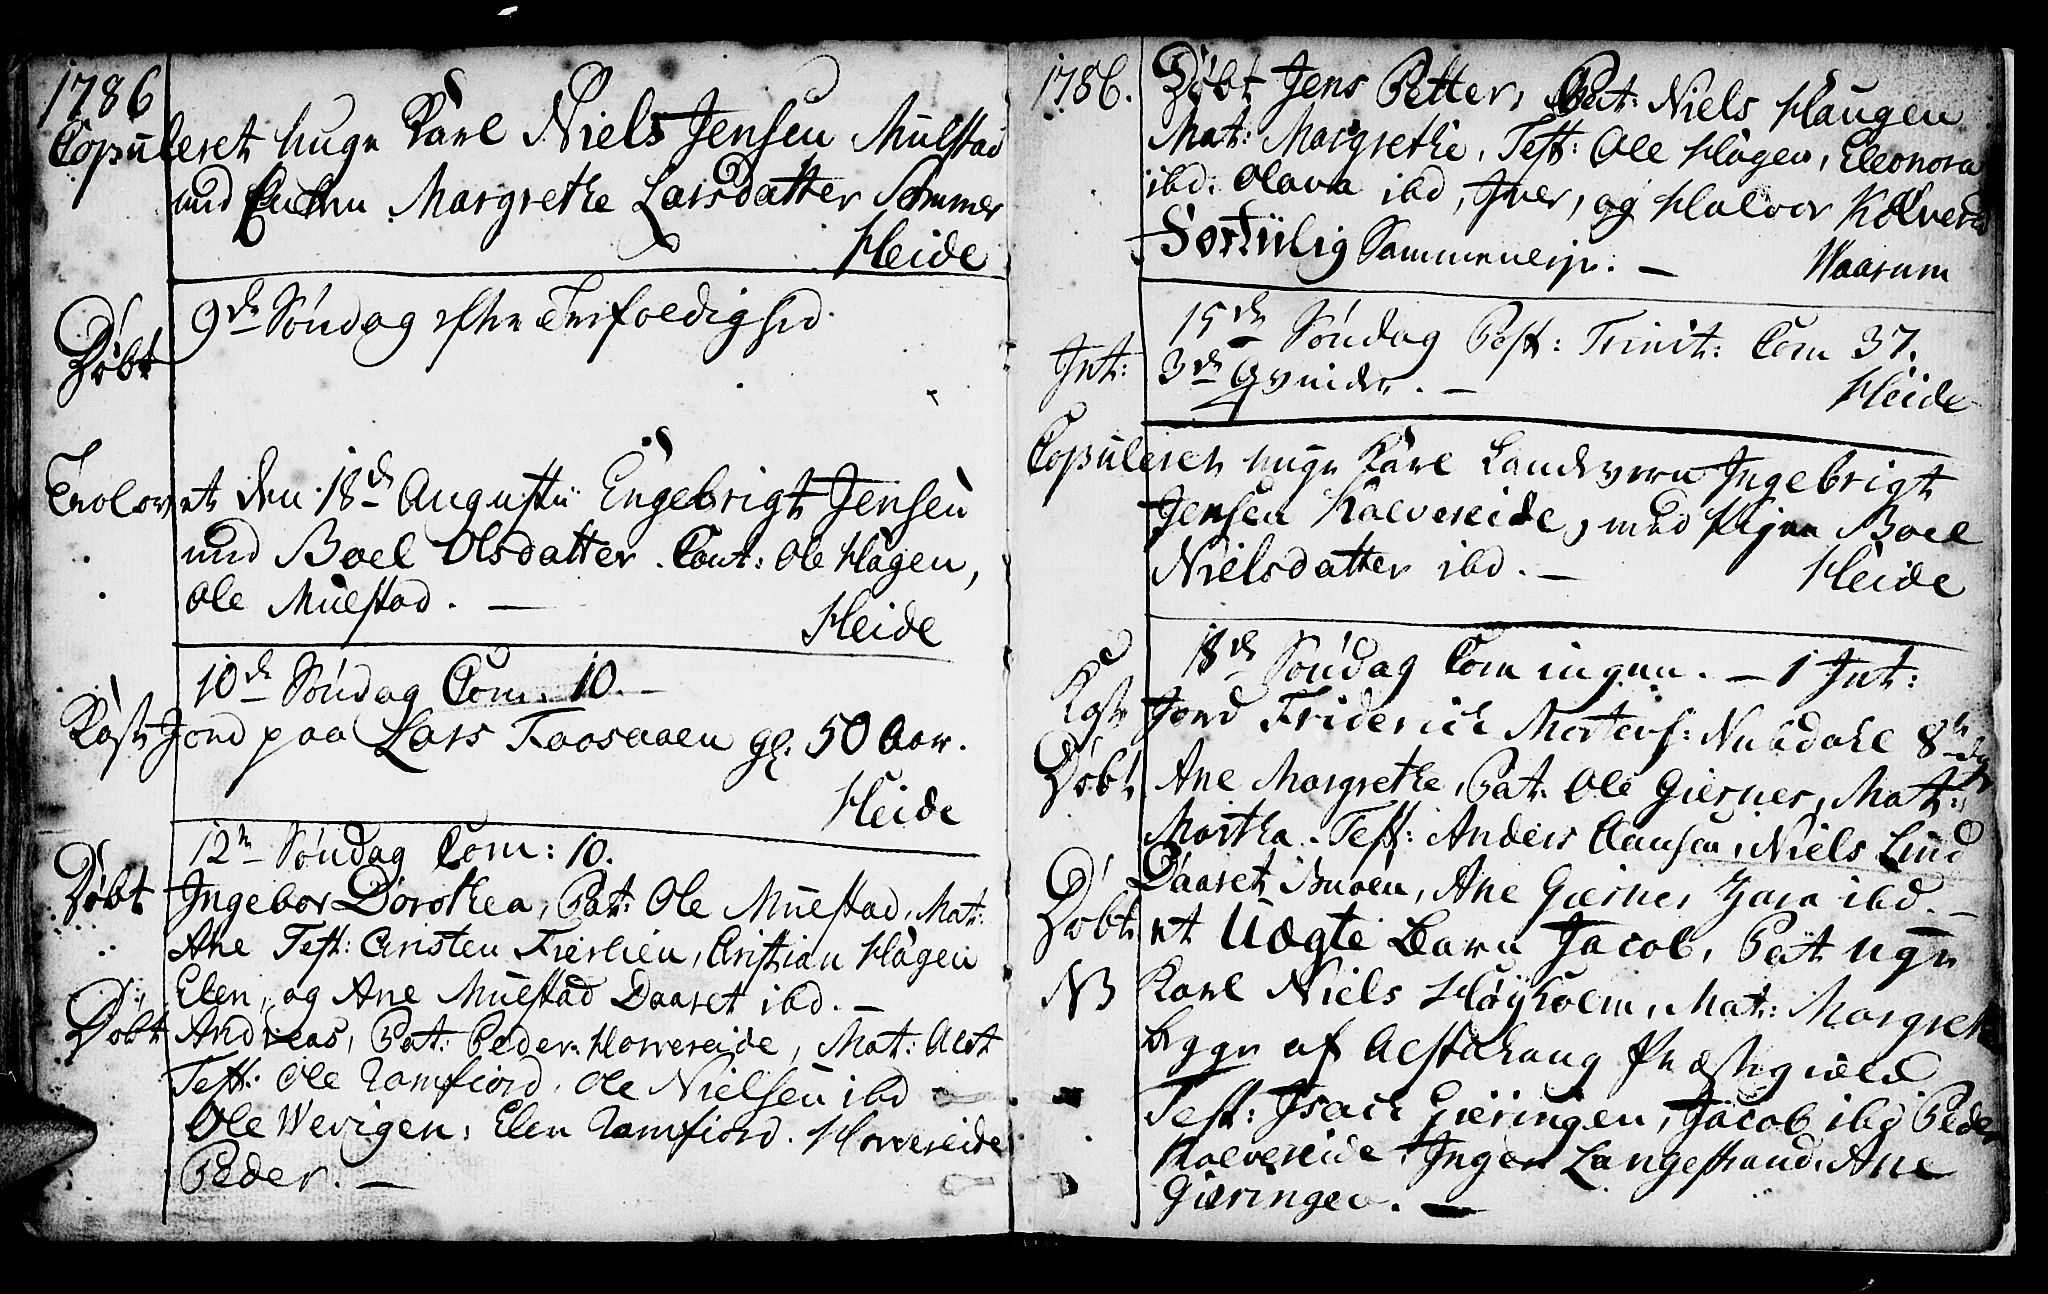 1786
Copuleret unge Karl Niels Jensen Mulstad
med Enken Margrethe Larsdatter Sommer
Heide
9de Søndag efter Trefoldighed.
Døbt
Trolovet den 18de Augustii Engebrigt Jensen
med Boel Olsdatter. Cout: Ole Hågen,
Ole Muelstad. —
Heide
10de Søndag Com: 10. —
Kast Jord paa Lars Faasaaen gl. 50 Aar.
Heide
12te Søndag Com: 10.
Døbt Ingebor Dorothea, Pat: Ole Muestad, Mat:
Ane Test: Cristen Frerlien, Cristian Hågen
Elen, og Ane Muestad Daaret ibd. —
Døbt Andreas, Pat: Peder Horvereide, Mat: Alet
Test: Ole Namfiord, Ole Nielsen ibd
Ole Werigen, Elen Namfiord. Horvereide
Peder. —
1786. Døbt Jens Petter, Pat: Niels Haugen
Mat: Margrethe, Test: Ole Hågen, Eleonora
ibd. Olava ibd, Iver, og Halvor Kolvered
Sørtülig Sammenesje. — Waarum
15de Søndag Post: Trinit: Com 37.
Int: 3de Qvinder. —
Heide
Copuleret unge Karl Landvern Ingebrigt
Jensen Kolvereide, med Pigen Boel
Nielsdatter ibd. —
Heide
18de Søndag Com ingen. — 1 Int:
Kast Jord Friderich Mortens: Nubdahl 8te dg
Døbt Ane Margrethe, Pat: Ole Giesnes, Mat:
Martha. Test: Anders Clausen, Niels Lund
Daaret Buöen, Ane Giesnes Zara ibd. —
Døbt et Uægte Barn Jacob, Pat ugn
NB Karl Niels Høyholm, Mat: Margrete
Bygge af Alstahoug Præstegield
Test: Isach Gieringen, Jacob ibd Peder
Kolvereide Inger Langestrand, Ane
Gieringen. —